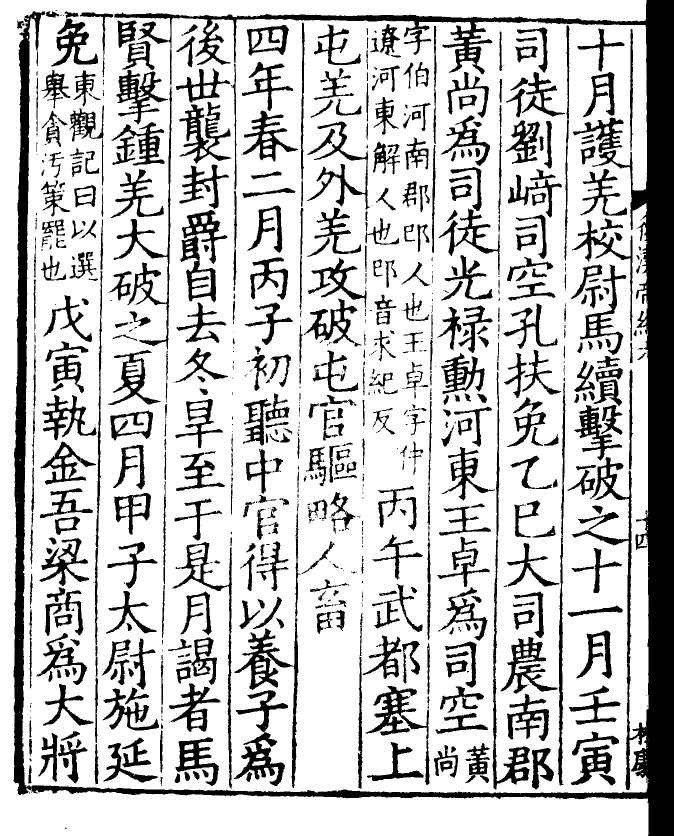 十月護羌校尉馬續擊破之十一月壬寅
司徒劉﨑司空孔扶免乙巳大司農南郡
黃尚爲司徒光禄勲河東王卓爲司空黃尚
字伯河南郡邔人也王卓字仲遼河東解人也邔音求紀反丙午武都塞上
屯羌及外羌攻破屯官驅略人畜
四年春二月丙子初聽中官得以養子爲
後世襲封爵自去冬旱至于是月謁者馬
賢擊鍾羌大破之夏四月甲子太尉施延
免東觀記曰以選舉貪汚策罷也戊寅執金吾梁商爲大將